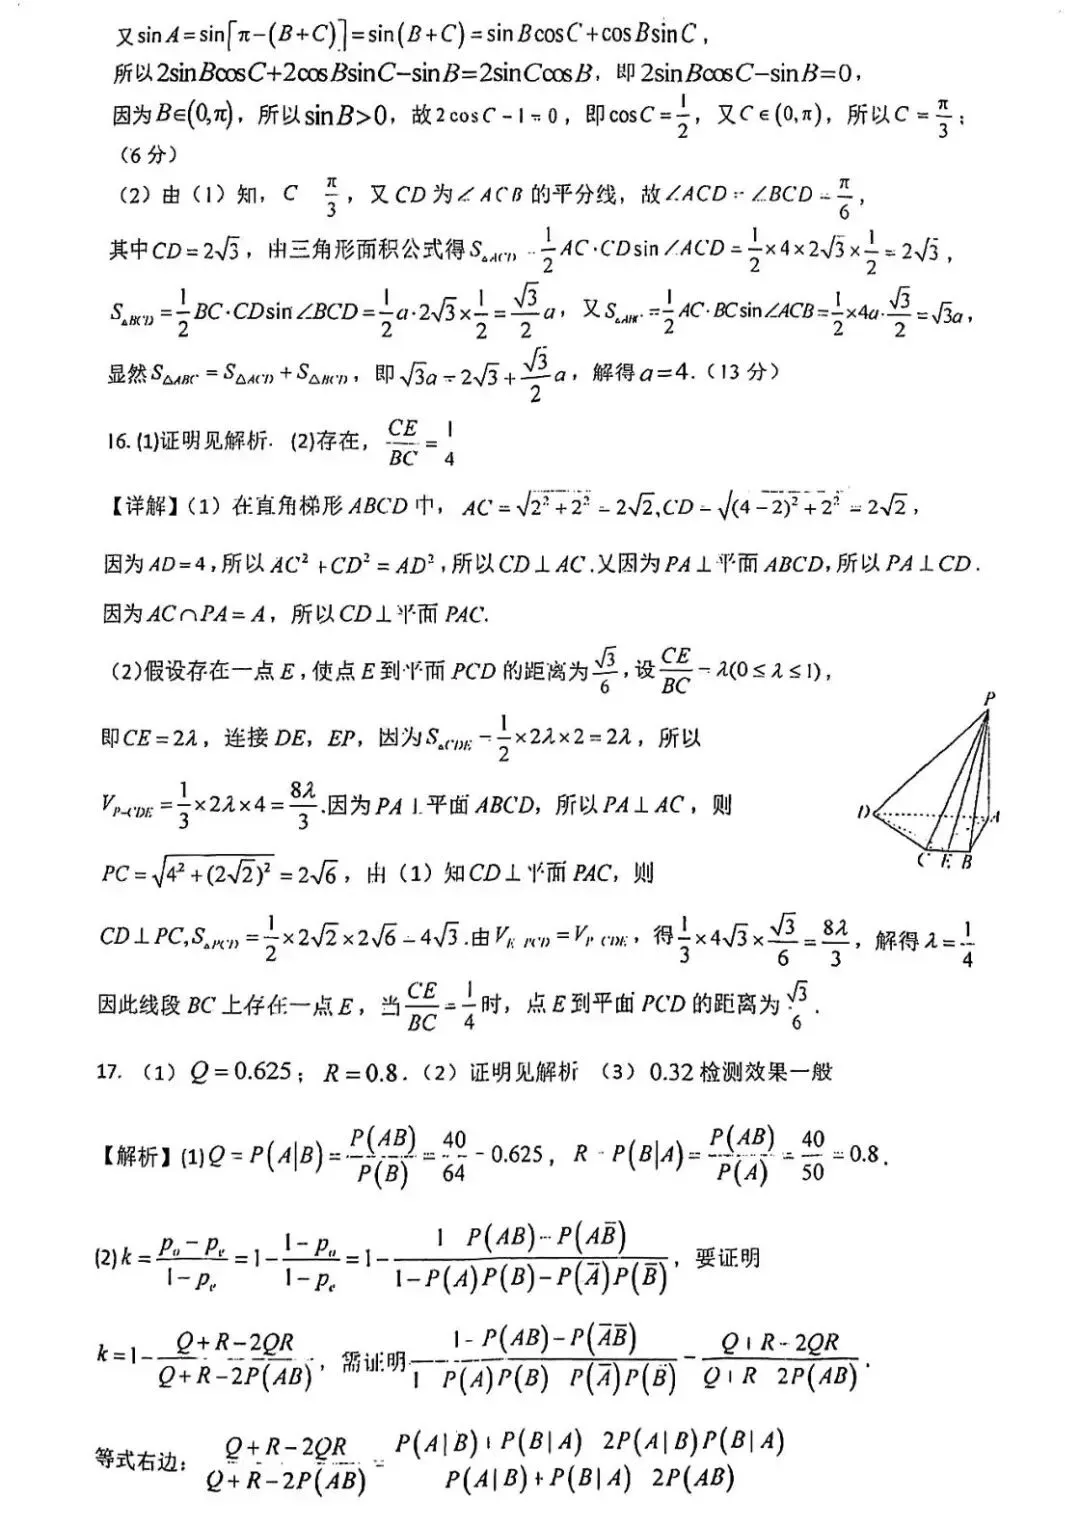 又 sin A = sin[π-(B+C)] = sin(B+C) = sin B cos C + cos B sin C,
所以 2sin B cos C + 2cos B sin C − sin B = 2sin C cos B, 即 2sin B cos C − sin B = 0,
因为 B∈(0,π), 所以 sin B > 0, 故 2cos C − 1 = 0, 即 cos C = 1/2, 又 C∈(0,π), 所以 C = π/3;
(6 分)
(2) 由 (1) 知, C π/3, 又 CD 为∠ACB 的平分线, 故∠ACD = ∠BCD = π/6,
其中 CD = 2√3, 由三角形面积公式得 S△ACD = 1/2 AC·CD sin∠ACD = 1/2×4×2√3×1/2 = 2√3,
S△BCD = 1/2 BC·CD sin∠BCD = 1/2 a·2√3×1/2 = √3/2 a, 又 S△ABC = 1/2 AC·BC sin∠ACB = 1/2×4a·√3/2 = √3a,
显然 S△ABC = S△ACD + S△BCD, 即 √3a = 2√3 + √3/2 a, 解得 a=4. (13 分)
16. (1)证明见解析. (2)存在, CE/BC = 1/4
【详解】(1) 在直角梯形 ABCD 中, AC = √(2²+2²) = 2√2, CD = √((4−2)²+2²) = 2√2,
因为 AD=4, 所以 AC² + CD² = AD², 所以 CD⊥AC. 又因为 PA⊥平面 ABCD, 所以 PA⊥CD.
因为 AC∩PA = A, 所以 CD⊥平面 PAC.
(2)假设存在一点 E, 使点 E 到平面 PCD 的距离为 √3/6, 设 CE/BC = λ(0≤λ≤1),
即 CE = 2λ, 连接 DE, EP, 因为 S△CDE = 1/2×2λ×2 = 2λ, 所以
V P-CDE = 1/3×2λ×4 = 8λ/3. 因为 PA⊥平面 ABCD, 所以 PA⊥AC, 则
PC = √(4²+(2√2)²) = 2√6, 由 (1) 知 CD⊥平面 PAC, 则
CD⊥PC, S△PCD = 1/2×2√2×2√6 = 4√3. 由 V E-PCD = V P-CDE, 得 1/3×4√3×√3/6 = 8λ/3, 解得 λ = 1/4
因此线段 BC 上存在一点 E, 当 CE/BC = 1/4 时, 点 E 到平面 PCD 的距离为 √3/6.
P
D
A
C E B
17. (1) Q = 0.625; R = 0.8. (2) 证明见解析 (3) 0.32 检测效果一般
【解析】(1) Q = P(A|B) = P(AB)/P(B) = 40/64 = 0.625, R = P(B|A) = P(AB)/P(A) = 40/50 = 0.8.
(2) k = (pₒ − pₑ)/(1 − pₑ) = 1 − (1 − pₒ)/(1 − pₑ) = 1 − (1 P(AB) − P(AB̄))/(1 − P(A)P(B) − P(Ā)P(B̄)), 要证明
k = 1 − (Q+R−2QR)/(Q+R−2P(AB)), 需证明 (1 − P(AB) − P(ĀB̄))/(1 P(A)P(B) P(Ā)P(B̄)) = (Q+R−2QR)/(Q+R 2P(AB)).
等式右边: (Q+R−2QR)/(Q+R−2P(AB)) = (P(A|B)+P(B|A) 2P(A|B)P(B|A))/(P(A|B)+P(B|A) 2P(AB))